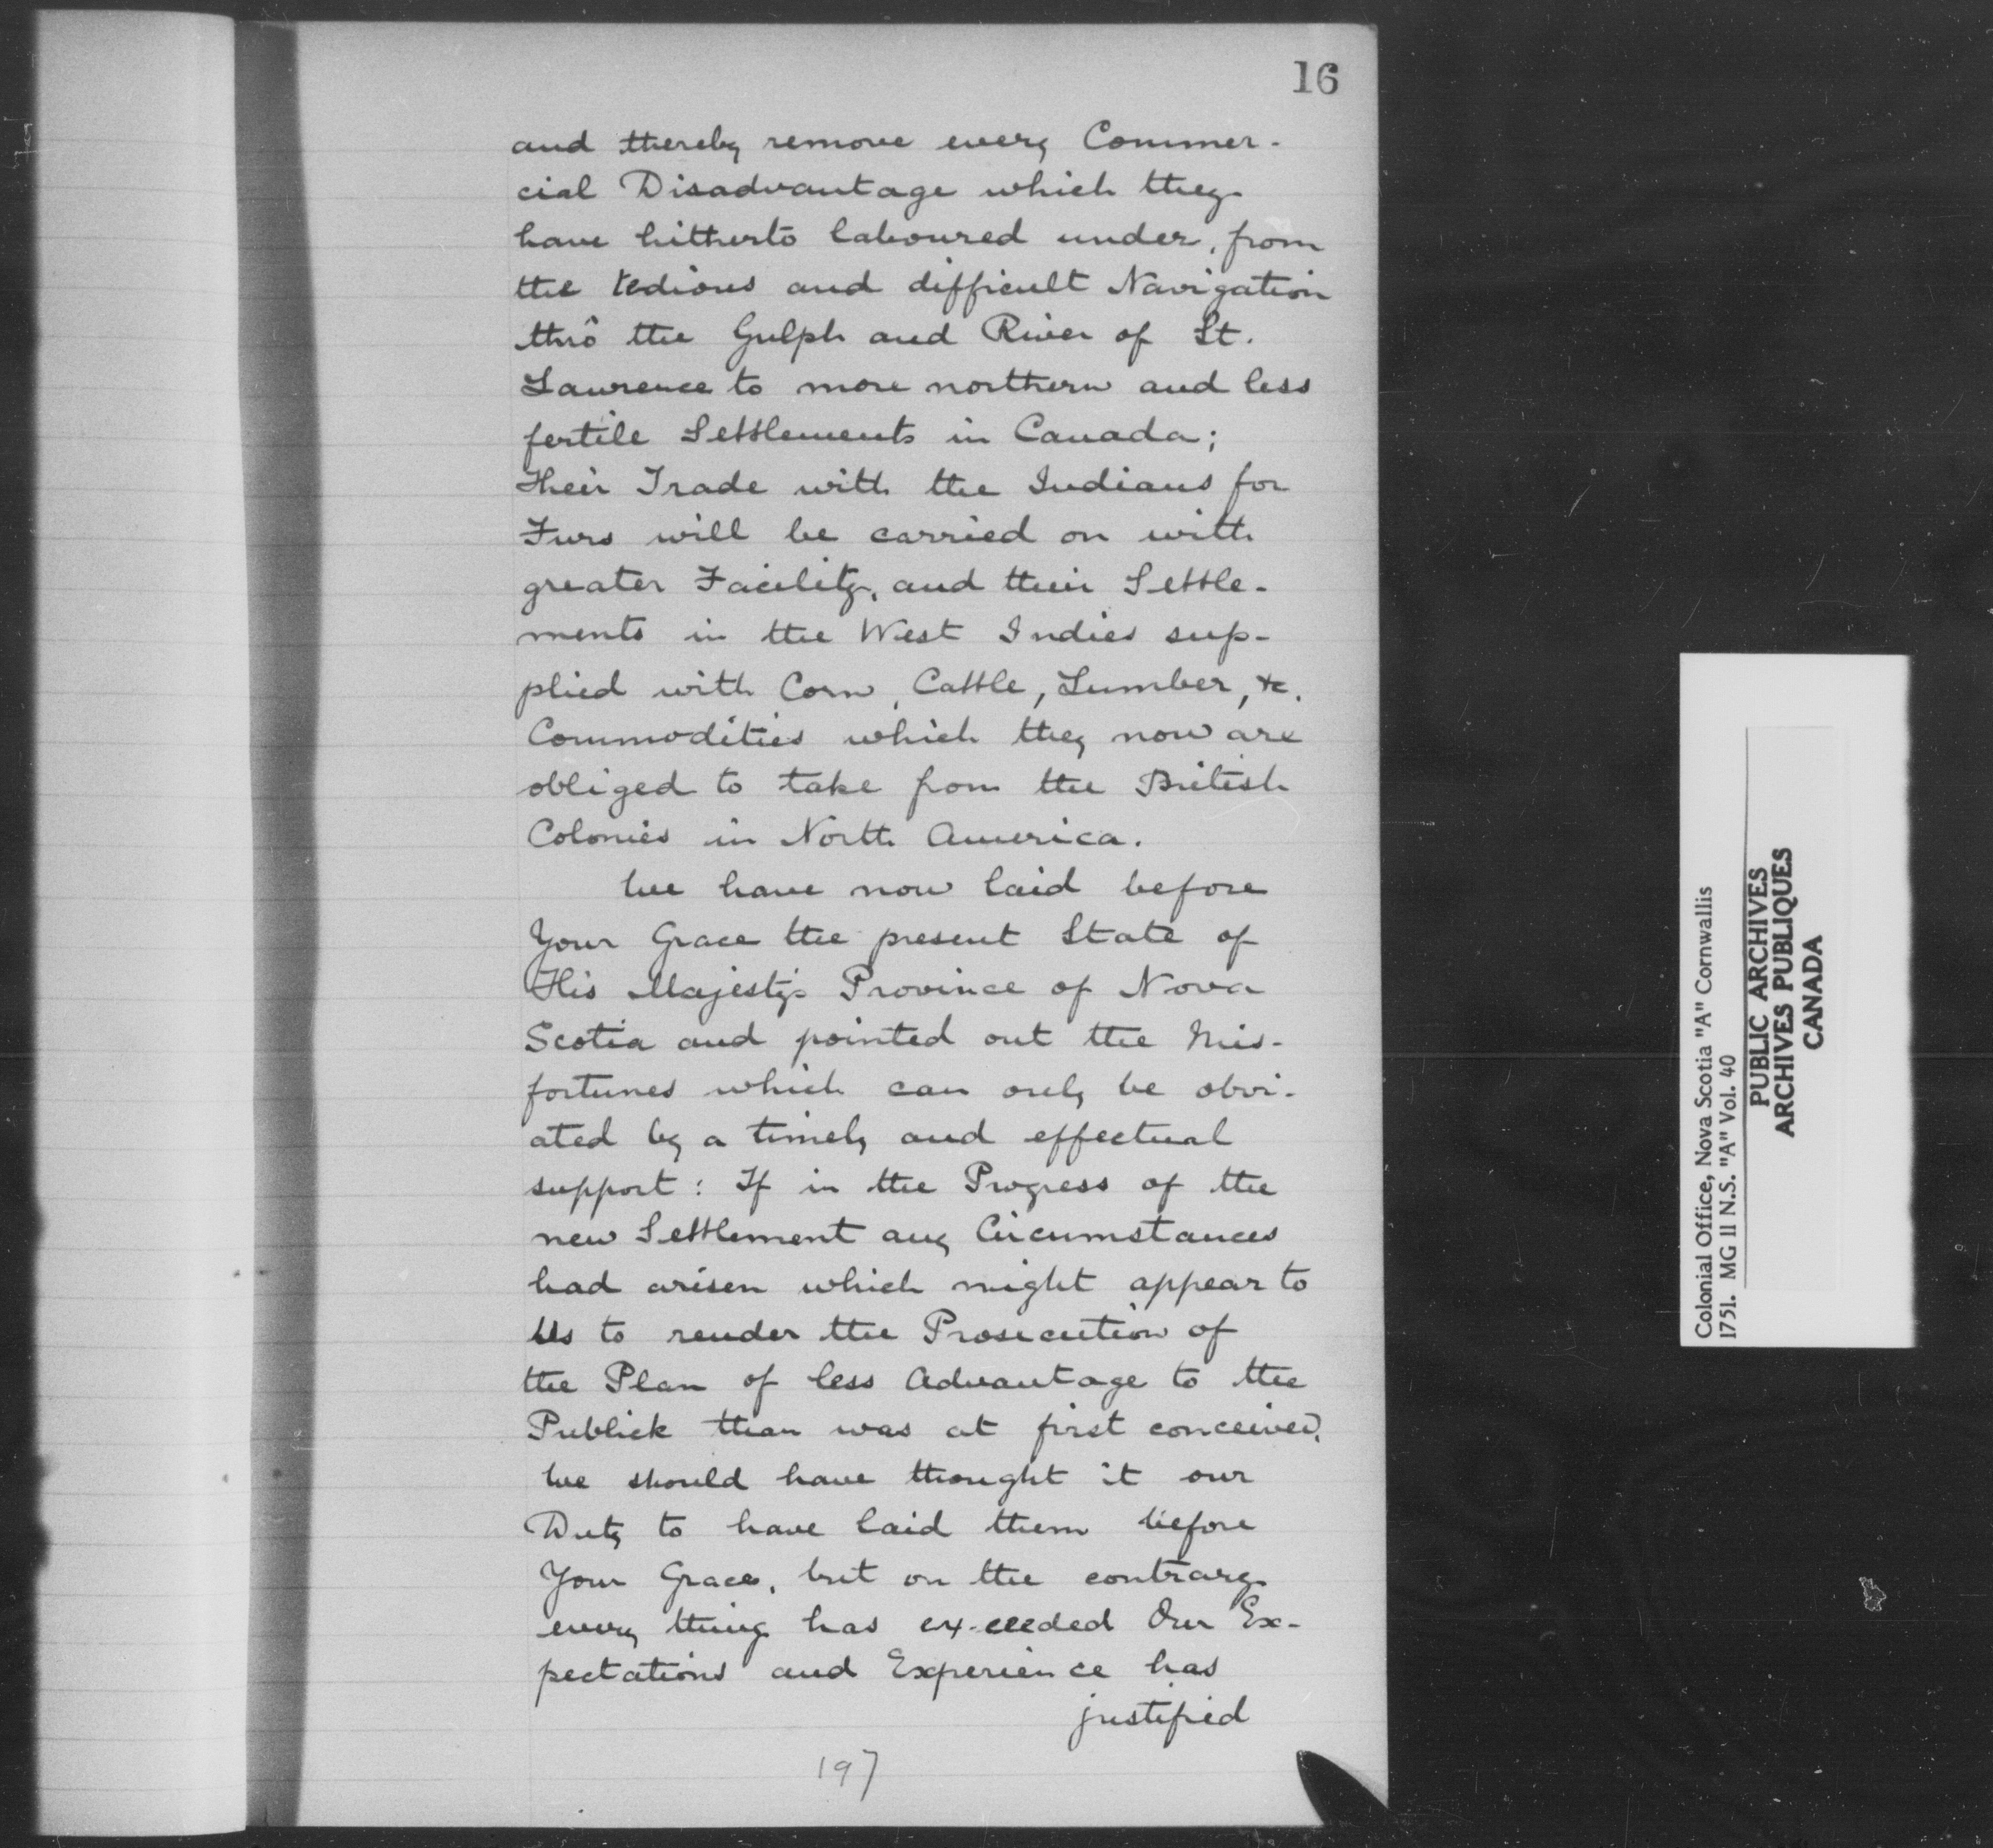 16
and thereby remove every Commer-
cial Disadvantage which they
have hitherto laboured under, from
the tedious and difficult Navigation
thrô the Gulph and River of St.
Lawrence to more northern and less
fertile Settlements in Canada;
Their Trade with the Indians for
Furs will be carried on with
greater Facility, and their Settle-
ments in the West Indies sup-
plied with Corn, Cattle, Lumber, &c.
Commodities which they now are
obliged to take from the British
Colonies in North America.
We have now laid before
Your Grace the present State of
His Majesty's Province of Nova
Scotia and pointed out the Mis-
fortunes which can only be obvi-
ated by a timely and effectual
support: If in the Progress of the
new Settlement any Circumstances
had arisen which might appear to
Us to render the Prosecution of
the Plan of less Advantage to the
Publick than was at first conceived,
We should have thought it our
Duty to have laid them before
Your Grace, but on the contrary
every thing has ex-ceeded Our Ex-
pectations and Experience has
justified
197
Colonial Office, Nova Scotia "A" Cornwallis
1751. MG II N.S. "A" Vol. 40
PUBLIC ARCHIVES
ARCHIVES PUBLIQUES
CANADA